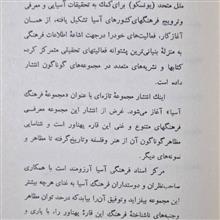 ملل متحد (یونسکو) برای کمک به تحقیقات آسیایی و معرفی
و ترویج فرهنگهای کشورهای آسیا تشکیل یافته، از همان
آغاز کار، فعالیتهای خود را درجهت اشاعهٔ اطلاعات فرهنگی
به منزلهٔ بنیانی‌ترین پشتوانه فعالیتهایی متمرکز کرده
کتابها و نشریه‌های متعدد در مجموعه‌های گوناگون انتشار
داده است.
اینک انتشار مجموعهٔ تازه‌ای با عنوان «مجموعهٔ فرهنگ
آسیا» آغاز می‌شود. غرض از انتشار این مجموعه معرفی
فرهنگهای متنوع و غنی این قاره پهناور است و شناسایی
مظاهر گوناگون آن از هنر و فلسفه و تاریخ گرفته تا مظاهر و
نمونه‌های دیگر.
مرکز اسناد فرهنگی آسیا آرزومند است با همکاری
صاحب‌نظران و دوستداران فرهنگ آسیا به غنای هرچه بیشتر
این مجموعه بیفزاید و توفیق آن را بیابد که مظاهر گوناگون
و جنبه‌های ناشناختهٔ فرهنگ این قاره پهناور را، با یاری و